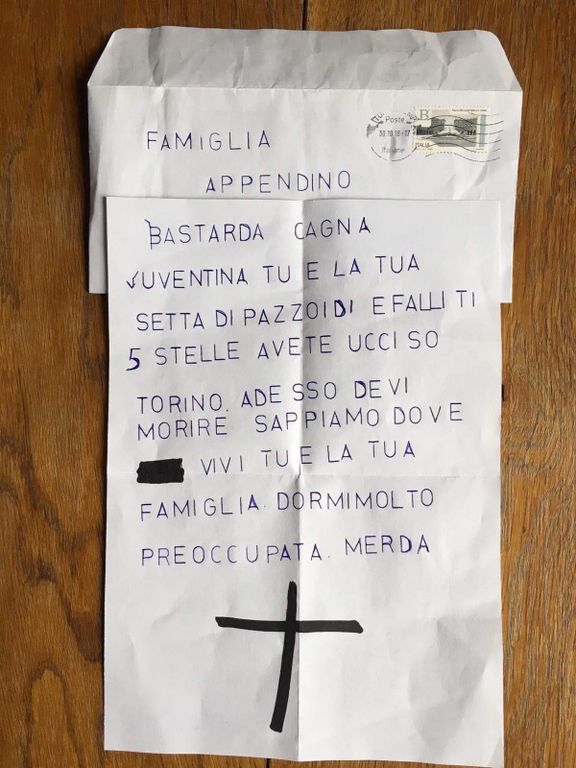 FAMIGLIA
APPENDINO
Poste
30.10.18-17
Italiane
B
ITALIA
BASTARDA CAGNA
JUVENTINA TU E LA TUA
SETTA DI PAZZOIDI E FALLITI
5 STELLE AVETE UCCISO
TORINO. ADESSO DEVI
MORIRE SAPPIAMO DOVE
VIVI TU E LA TUA
FAMIGLIA. DORMI MOLTO
PREOCCUPATA. MERDA